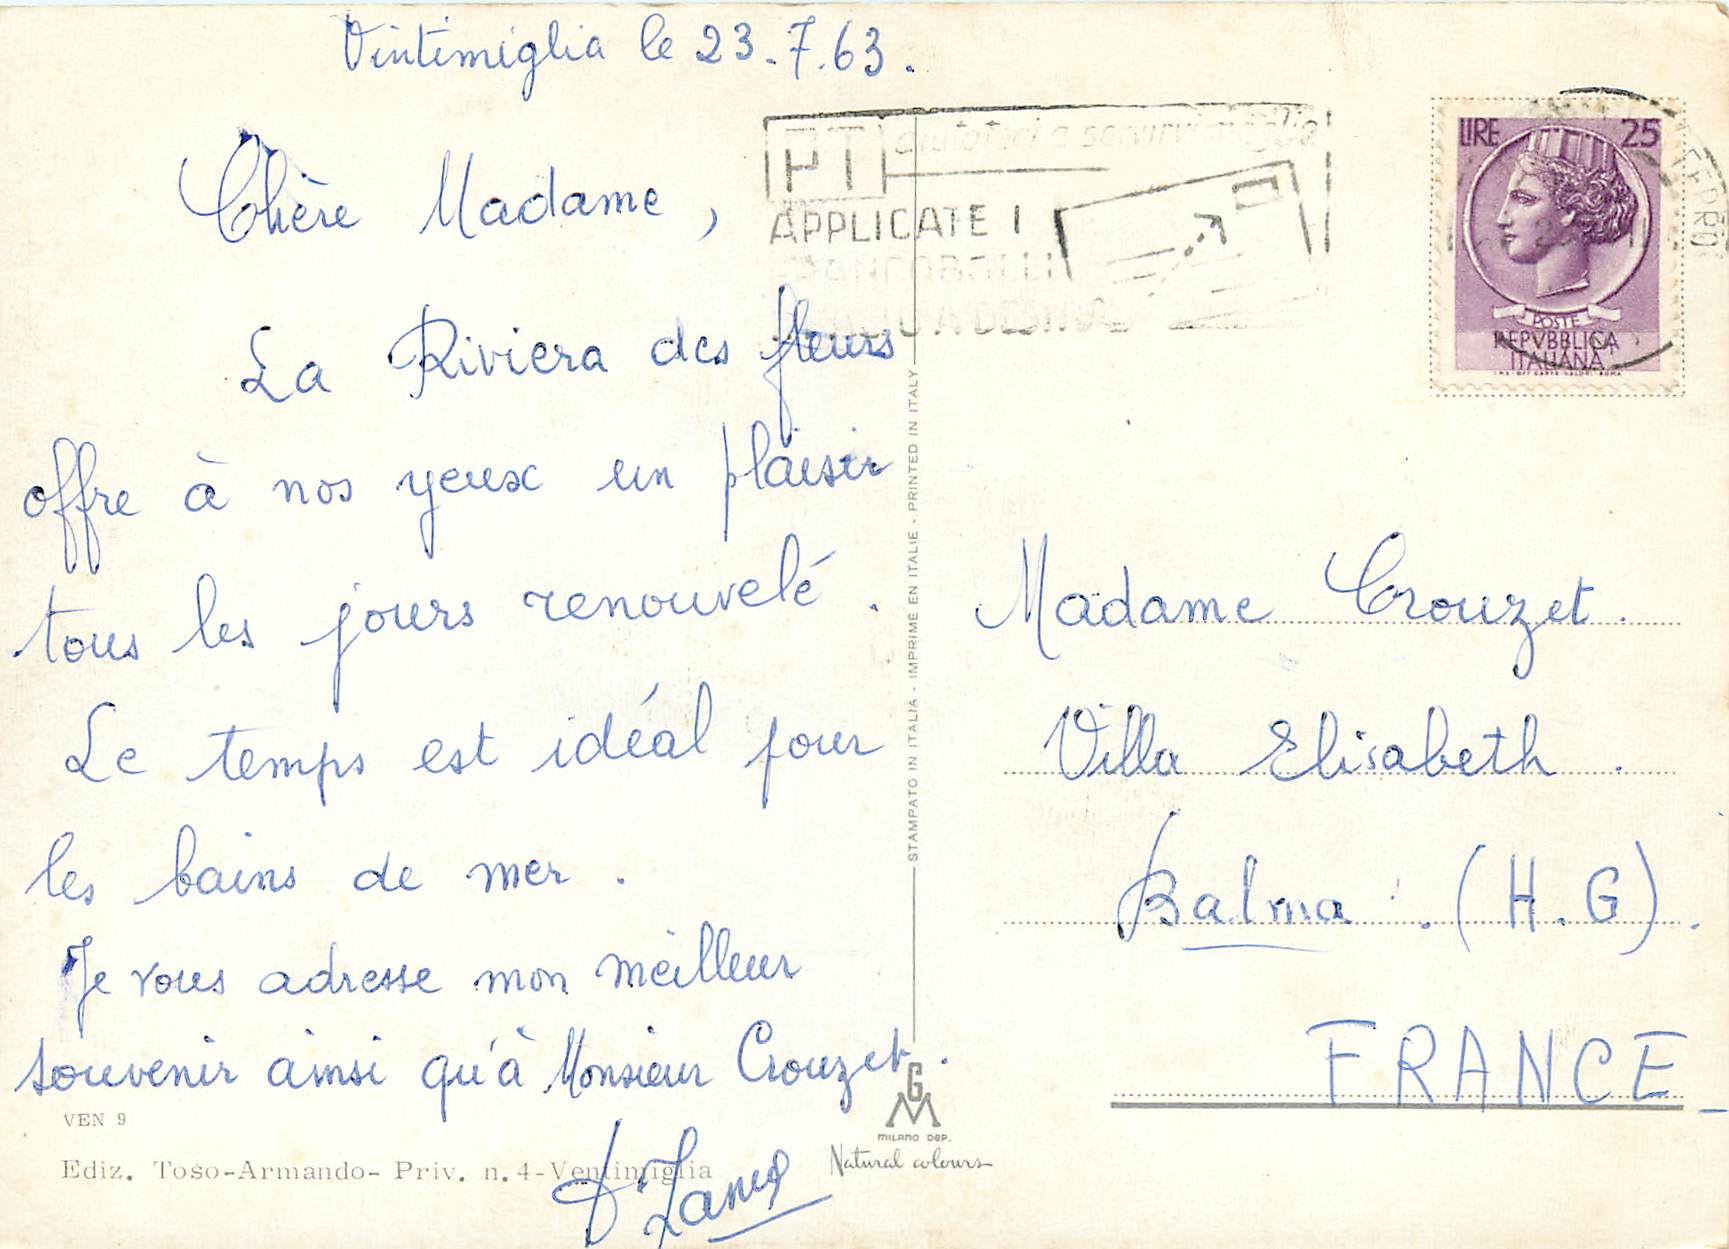 Vintimiglia le 23.7.63.
Chère Madame,
La Riviera des fleurs
offre à nos yeux un plaisir
tous les jours renouvelé.
Le temps est idéal pour
les bains de mer.
Je vous adresse mon meilleur
souvenir ainsi qu'à Monsieur Crouzet.
VEN 9
Ediz. Toso-Armando- Priv. n. 4-Ventimiglia
STAMPATO IN ITALIA - IMPRIMÉ EN ITALIE - PRINTED IN ITALY
GM
MILANO DEP.
Natural colours
PT
APPLICATE I
LIRE 25
POSTE
REPVBBLICA
ITALIANA
Madame Crouzet.
Villa Elisabeth.
Balma. (H.G).
FRANCE